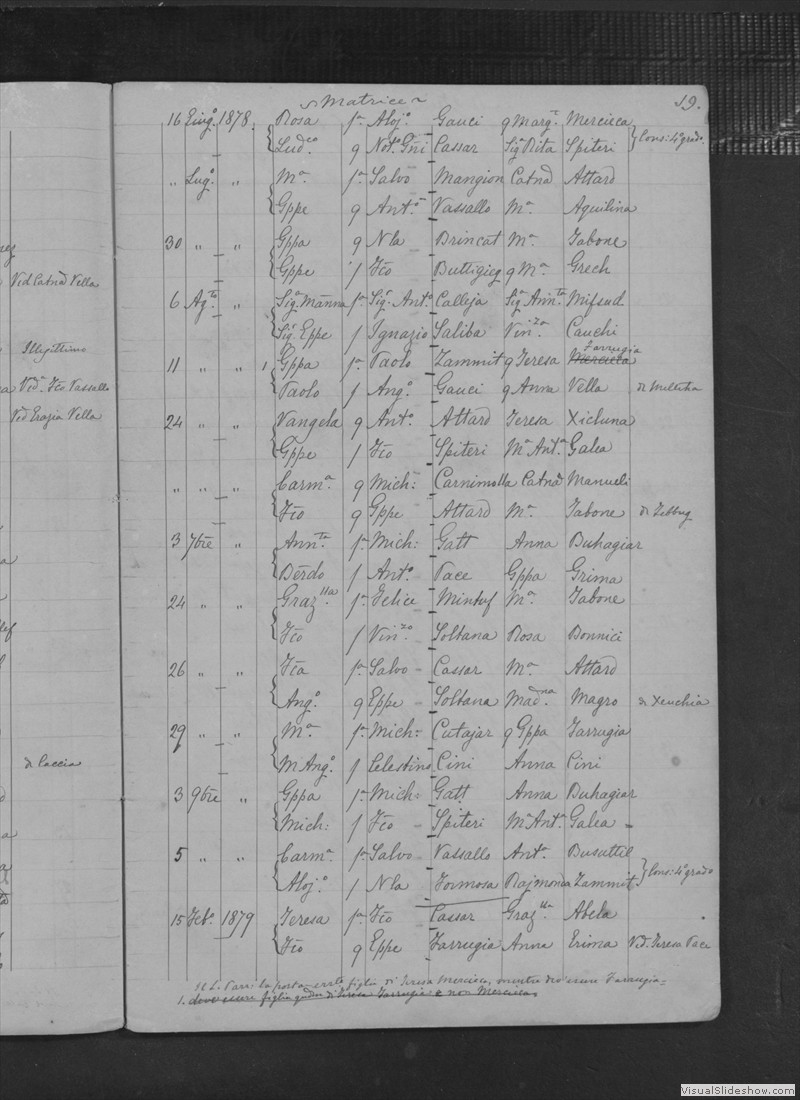 Matrice
19.
16 Giug.o 1878. Rosa f.a Aloj.o Gauci q Marg.t Mercieca
Lud.co q Not.o Gñi Cassar Sig.a Rita Spiteri } Cons: 4° grado.
" Lug.o " M.a f.a Salvo Mangion Catnã Attard
Gppe q Ant.o Vassallo M.a Aquilina
30 " " Gppa q Nla Brincat M.a Tabone
Gppe f Fco Buttigieg q M.a Grech
6 Ag.to " Sig.a Mãnna f.a Sig.r Ant.o Calleja Sig.a Ann.ta Mifsud
Sig.r Gppe f Ignazio Saliba Vin.za Cauchi
Farrugia
11 " " 1 Gppa f.a Paolo Zammit q Teresa Mercieca
Paolo f Ang.o Gauci q Anna Vella
24 " " Vangela q Ant.o Attard Teresa Xicluna
Gppe f Fco Spiteri M.a Ant.a Galea
" " " Carm.a q Mich: Carnimolla Catnã Manueli
Fco q Gppe Attard M.a Tabone di Zebbug
3 7bre " Ann.ta f.a Mich: Gatt Anna Buhagiar
Berdo f Ant.o Pace Gppa Grima
24 " " Graz.lla f.a Felice Mintuf M.a Tabone
Fco f Vin.zo Soltana Rosa Bonnici
26 " " Fca f.a Salvo Cassar M.a Attard
Ang.o q Gppe Soltana Mad.na Magro di Xeuchia
29 " " M.a f.a Mich: Cutajar q Gppa Farrugia
M Ang.o f Celestino Cini Anna Cini
3 9bre " Gppa f.a Mich: Gatt Anna Buhagiar
Mich: f Fco Spiteri M.a Ant.a Galea
5 " " Carm.a f.a Salvo Vassallo Ant.a Busuttil
Aloj.o f Nla Formosa Rajmonda Zammit } Cons: 4° grado
15 Feb.o 1879 Teresa f.a Fco Cassar Graz.lla Abela
Fco q Gppe Farrugia Anna Grima Ved. Teresa Pace
figlia di Teresa Mercieca, mentre dev'essere Farrugia
1. dove essere figlia di Teresa Farrugia e non Mercieca
Ved Catnã Vella
Illegittimo
Ved.a Fco Vassallo
Ved Grazia Vella
di Caccia
VisualSlideshow.com